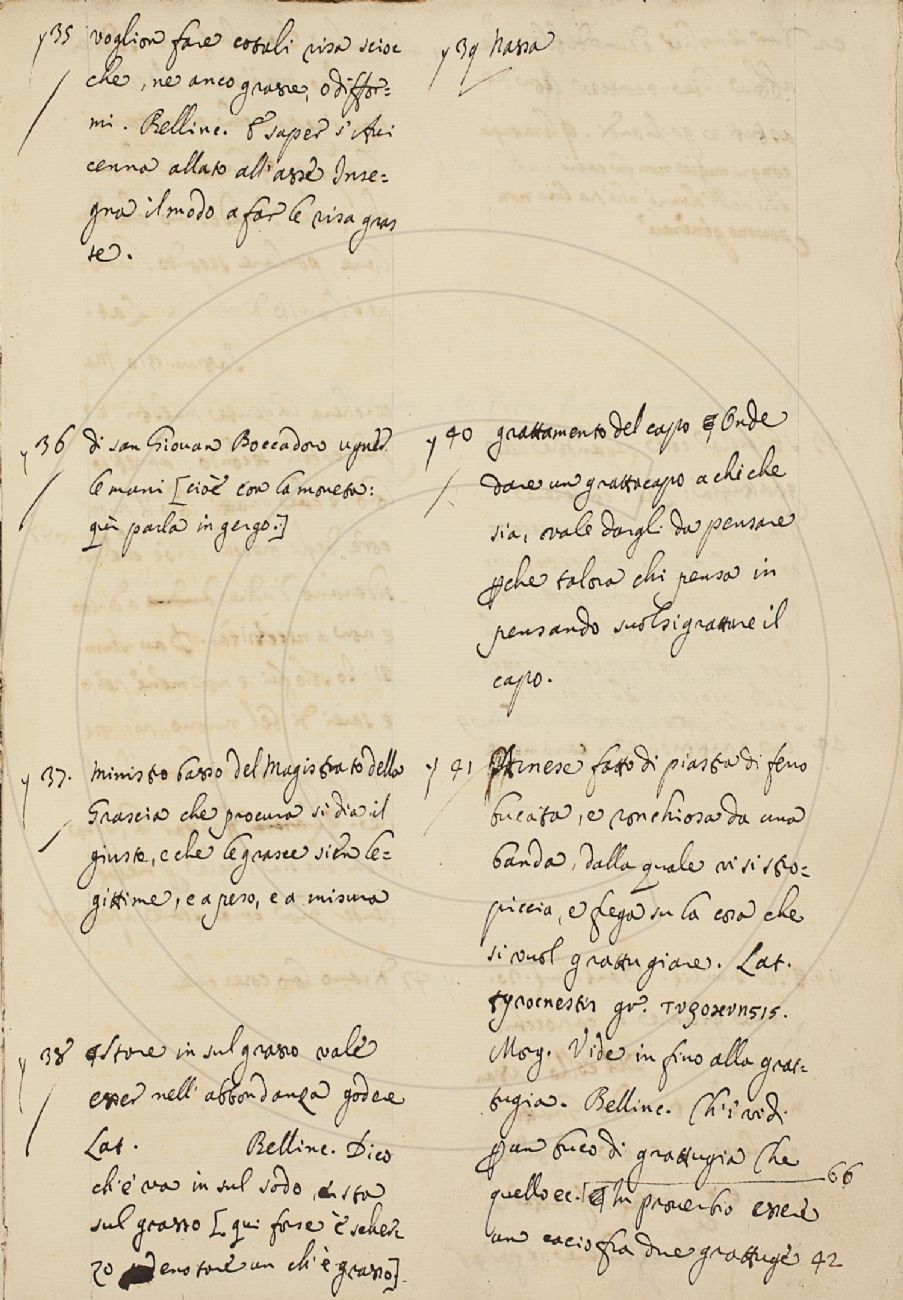 y 35 voglion fare cotali risa scioc
che, ne anco grasse, o diffor=
mi. Bellinc. E saper s'Avi
cenna allato all'asse Inse=
gna il modo a far le risa gras
se.
y 36 di san Giovan Boccadoro ugner
le mani [cioè con la moneta:
quì parla in gergo.]
y 37. Ministro basso del Magistrato della
Grascia che procura si dia il
giusto, e che le grasce sien le=
gittime, e a peso, e a misura
y 38 Stare in sul grasso vale
esser nell'abbondanza godere
Lat. Bellinc. Dico
ch'è va in sul sodo, sta
sul grasso [qui forse è scher
zo denotare un ch'è grasso].
y 39 Nassa
y 40 grattamento del capo Onde
dare un grattacapo a chi che
sia, vale dargli da pensare
pche talora chi pensa in
pensando suolsi grattare il
capo.
y 41 Arnese fatto di piastra di ferro
bucata, e ronchiosa da una
banda, dalla quale vi si stro=
piccia, e frega su la cosa che
si vuol grattugiare. Lat.
tyrocnestis gr. τυροκνησις.
Morg. Vide in fino alla grat-
tugia. Bellinc. Ch'i vidi
p un buco di grattugia Che
quello ec. In proverbio essere 66
un cacio fra due grattuge 42